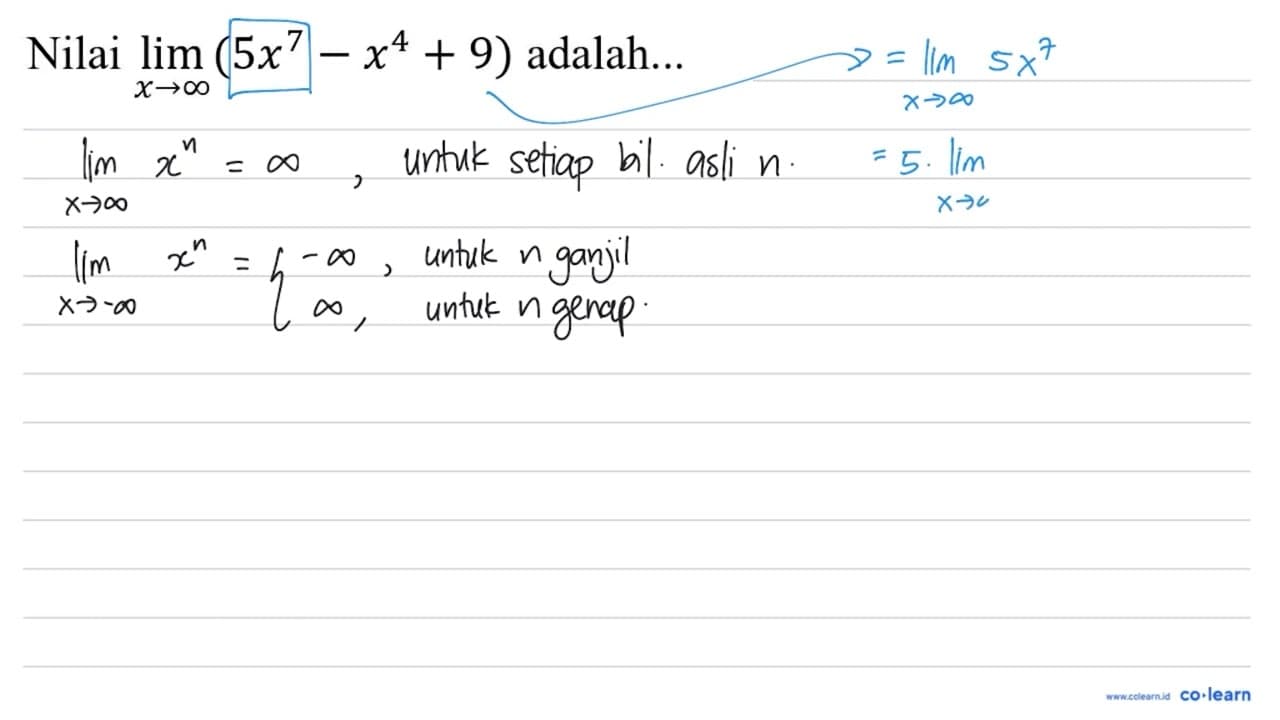 Nilai lim (5x⁷ − x⁴ + 9) adalah...
x→∞
= lim 5x⁷
x→∞
lim xⁿ = ∞ , untuk setiap bil. asli n.
x→∞
= 5. lim
x→
lim xⁿ = { -∞ , untuk n ganjil
x→-∞
∞ , untuk n genap.
www.colearn.id co·learn